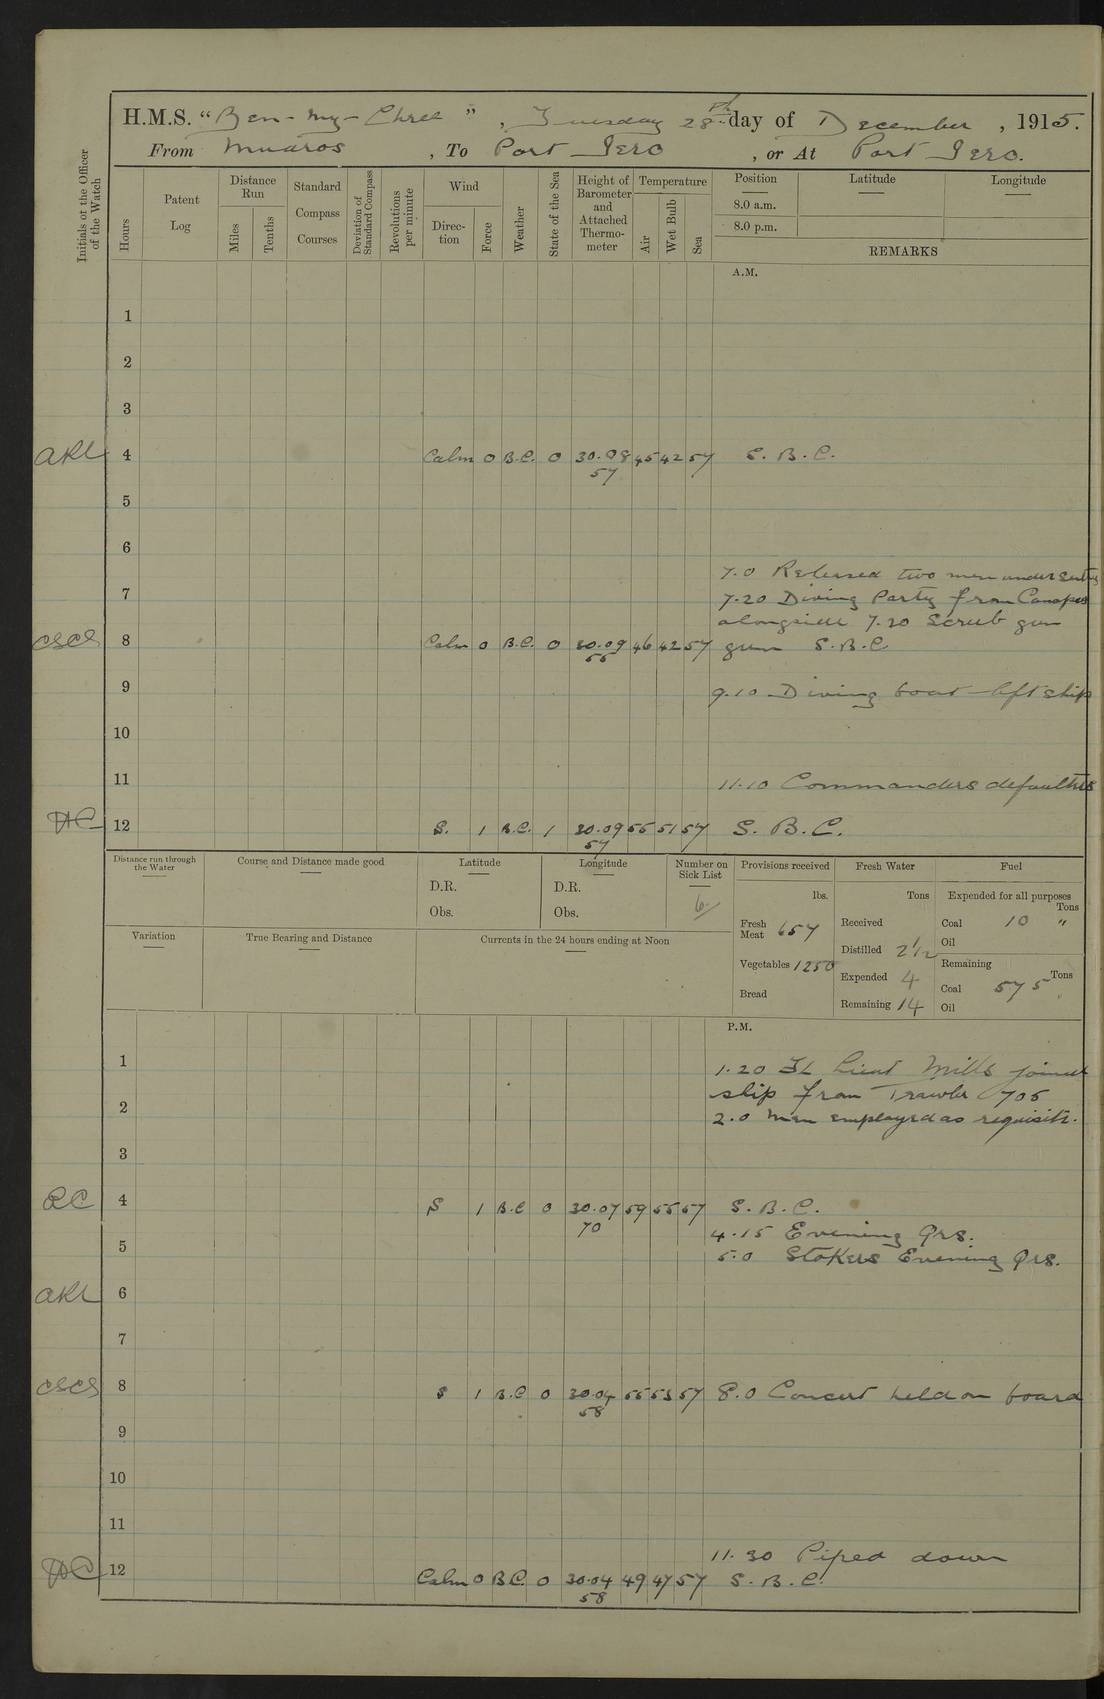 H.M.S. “Ben-my-Chree” , Tuesday 28th day of December , 1915.
From Mudros , To Port Iero , or At Port Iero.
Initials of the Officer of the Watch
Hours
Patent Log
Distance Run
Miles
Tenths
Standard Compass Courses
Deviation of Standard Compass
Revolutions per minute
Wind
Direction
Force
Weather
State of the Sea
Height of Barometer and Attached Thermometer
Temperature
Air
Wet Bulb
Sea
Position
Latitude
Longitude
8.0 a.m.
8.0 p.m.
REMARKS
A.M.
1
2
3
4 Calm 0 B.C. 0 30.08 45 42 57 S.B.C.
57
5
6
7.0 Released two men under sentry
7
7.20 Diving Party from Canopus
alongside 7.20 Scrub gun
CSCS 8 Calm 0 B.C. 0 30.09 46 42 57 gun S.B.C
55
9 9.10 Diving boat left ship
10
11 11.10 Commanders defaulters
12 S. 1 B.C. 1 30.09 55 51 57 S.B.C.
57
Distance run through the Water
Course and Distance made good
Latitude
D.R.
Obs.
Longitude
D.R.
Obs.
Number on Sick List
6
Provisions received
lbs.
Fresh Meat 657
Vegetables 1250
Bread
Fresh Water
Tons
Received
Distilled 2 1/2
Expended 4
Remaining 14
Fuel
Expended for all purposes
Tons
Coal 10 "
Oil
Remaining
Tons
Coal 575
Oil
Variation
True Bearing and Distance
Currents in the 24 hours ending at Noon
P.M.
1 1.20 Fl Lieut Mills joined
ship from Trawler 705
2 2.0 Men employed as requisite.
3
RC 4 S 1 B.C 0 30.07 59 55 57 S.B.C.
70
4.15 Evening Qrs.
5 5.0 Stokers Evening Qrs.
6
7
CSCS 8 S 1 B.C 0 30.04 55 53 57 8.0 Concert held on board
58
9
10
11
11.30 Piped down
12 Calm 0 B.C. 0 30.04 49 47 57 S.B.C.
58